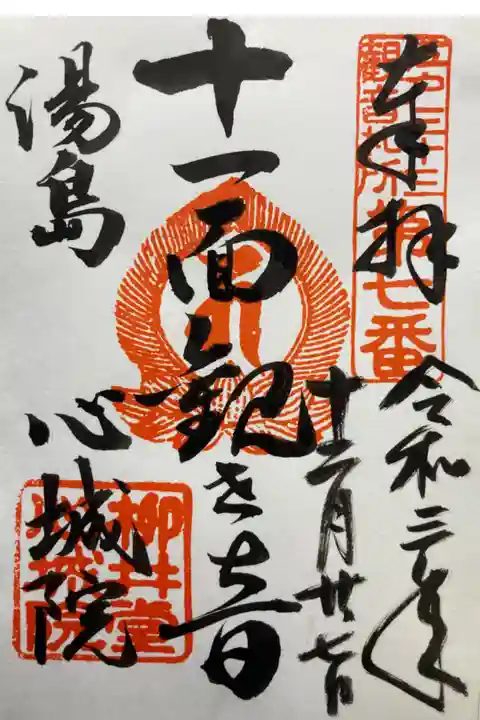 奉拝
令和三年
十二月廿七日
十一面観世音
湯島
心城院
江戸三十三
観音札所第七番
柳井堂
心城院